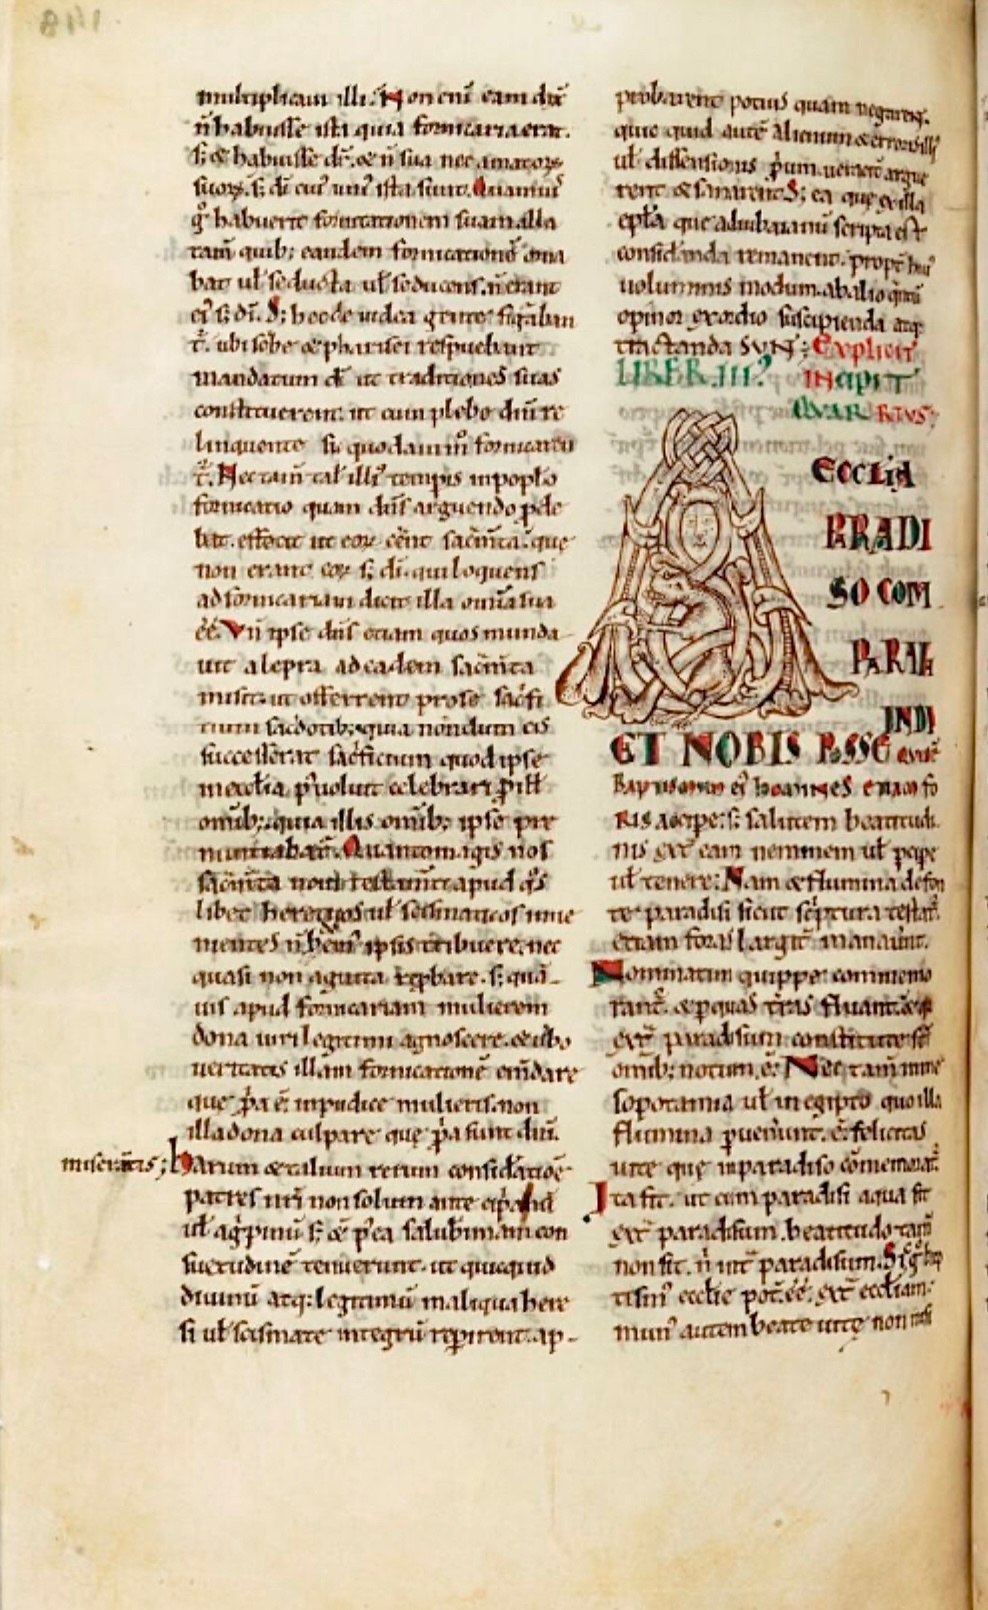 multiplicaui illi. Non eni̅ eam dix̅
n̅ habuisse ista quia fornicaria erat.
s; & habuisse dr̅. & n̅ sua nec amatoꝝ
suoꝝ. s; di̅ cui᷒ uni᷒ ista sunt. Quamuis
g° habuerit fornicationem suam illa
tam̅ quib; eandem fornicatione̅ orna
bat ul̅ seducta ul̅ seducens. n̅ erant
ei᷒ s; di̅. S; hec de iudea gente figuraban
t᷑. ubi scribe & pharisei respuebant
mandatum di̅ ut traditiones suas
constituerent. ut cum plebe dm̅ re
linquente sic quodam m° fornicaren
t᷑. Nec tam̅ tal̅ illi᷒ temp̅is in pop̅lo
fornicatio quam dn̅s arguendo ꝓde
bat. effecit ut eoꝝ ee̅nt sac̅m̅ta. que
non erant eoꝝ s; di̅. qui loquens
ad fornicariam dicit illa omi̅a sua
e̅e̅. Vn̅ ipse dn̅s etiam quos munda
uit a lepra ad eadem sac̅m̅ta
misit. ut offerrent pro se sac̅fi
cium sac̅dotib; quia nondum eis
successerat sac̅ficium quod ipse
in eccl̅ia p᷒ uoluit celebrari ꝓ ill̅
omib; quia illis omib; ipse pre
nuntiabat᷑. Quanto magis nos
sac̅m̅ta noui test̅m̅ti apud q°s
libet hereticos ul̅ scismaticos inue
nientes n̅ hec ipsis tribuere. nec
quasi non agnita reprobare. s; qua̅-
uis apud fornicariam mulierem
dona uiri legitimi agnoscere. & u̅bo
ueritatis illam fornicatione̅ em̅dare
que ꝓp̅a e̅ inpudice mulieris. non
illa dona culpare que ꝓp̅a sunt dm̅.
miser̅a̅tis; harum & talium rerum consid̅atio̅e
patres nr̅i non solum ante cip̅anu̅
ul̅ ag̅ppinu̅ s; & p᷒ea salub̅rimam con
suetudine̅ tenuerunt. ut quicquid
diuinu̅ atq; legitimu̅ in aliqua here
si ul̅ scismate integru̅ repirent. ap-
probarent potius quam negarent.
quic quid aute̅ alienum & erroris illi᷒
ul̅ dissensionis ꝓprium. ueraciter argue
rent & sanarent. S; ea que ex illa
epl̅a que ad iubaianu̅ scripta est
consid̅anda remanent. propt̅ hui᷒
uoluminis modum. ab alio qn̅tu̅
opinor exordio suscipienda atq;
tractanda SUNT; Explicit
LIBER. III᷒ INCIPIT
QUARTUS;
ECCLIA
PARADI
SO COM
PARATA
INDI
ET NOBIS POSSE quide̅
Baptismum ei᷒ homines etiam fo
Ris accipe: s; salutem beatitudi
nis ext̅ eam neminem ul̅ pcipe
ul̅ tenere; Nam & flumina de fon
te paradisi sicut sc̅ptura testat᷑.
etiam foras largit̅ manaunt.
Nominatim quippe commemo
rant᷑. & p quas t̅ras fluant. & q°
ext̅ paradisum constitute s̅t
omib; notum e̅; Nec tam̅ in me
sopotamia ul̅ in egipto quo illa
flumina ꝑuenunt. e̅ felicitas
uite que in paradiso co̅memorat᷑.
Ita fit. ut cum paradisi aqua sit
ext̅ paradisum. beatitudo tam̅
non sit. n̅ int̅ paradisum. Sic g° bap
tism᷒ eccl̅ie pot̅ e̅e̅. ext̅ eccl̅iam:
mun᷒ autem beate uite non nisi